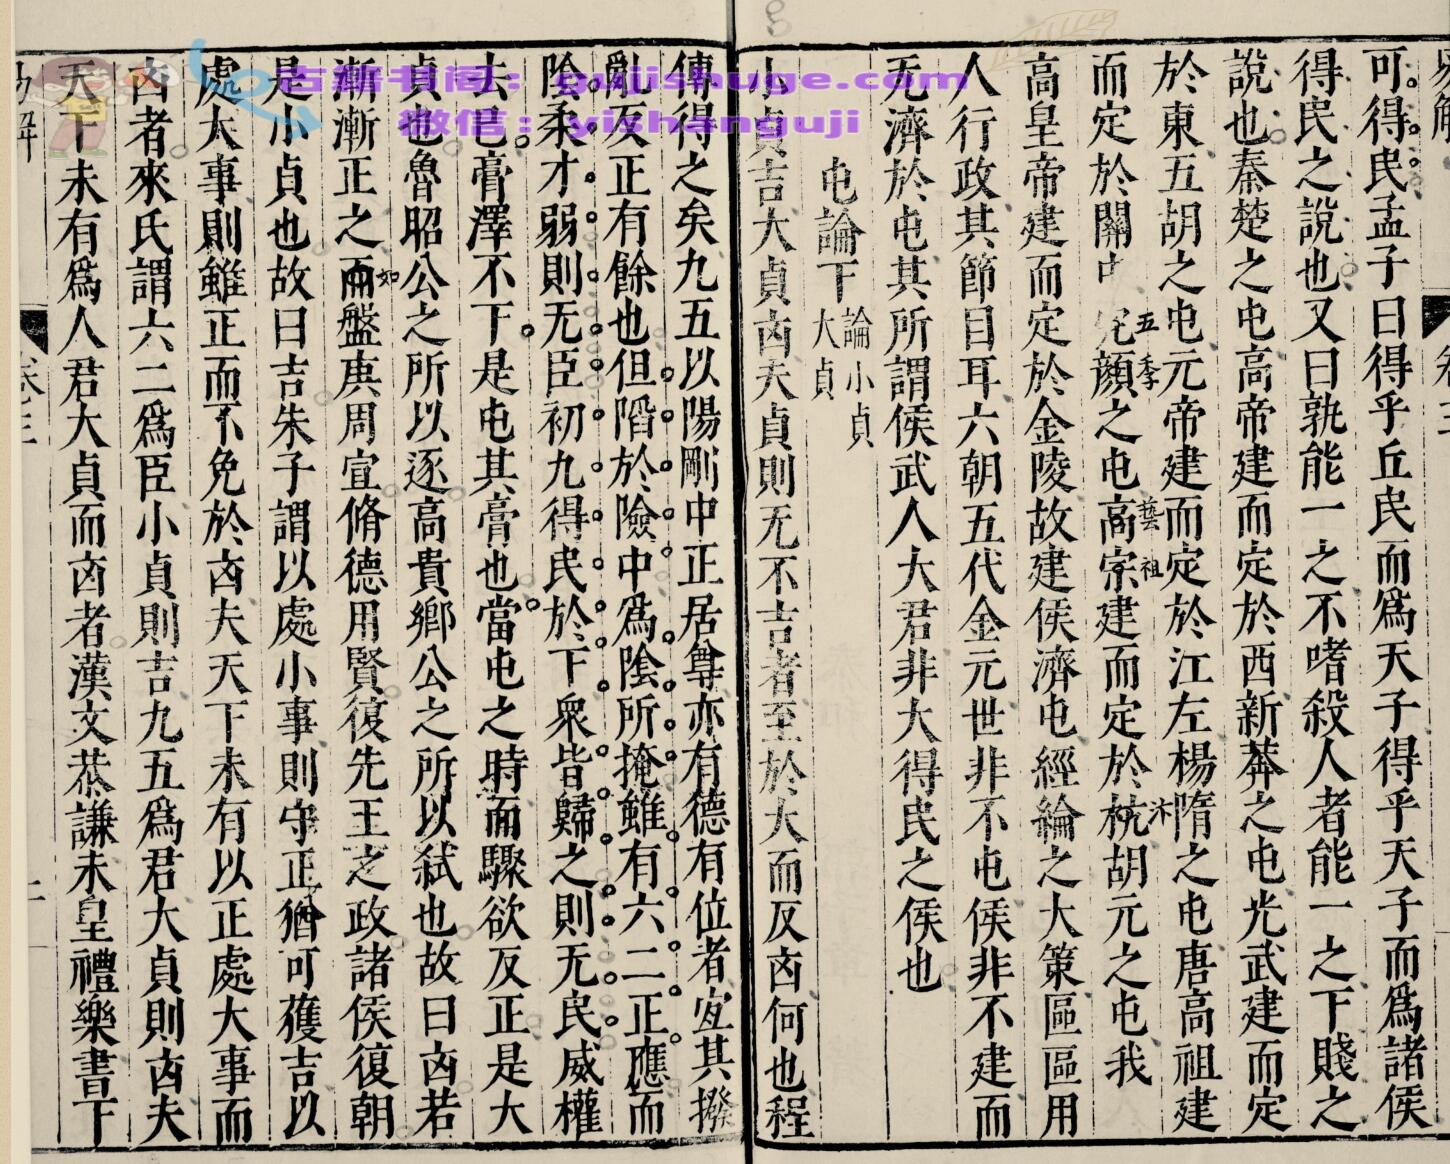 可得民孟子曰得乎丘民而爲天子得乎天子而爲諸侯
得民之說也又曰孰能一之不嗜殺人者能一之下賤之
說也秦楚之屯高帝建而定於西新莽之屯光武建而定
於東五胡之屯元帝建而定於江左楊隋之屯唐高祖建
而定於關中五季完顔之屯藝祖高宗建而定於汴杭胡元之屯我
高皇帝建而定於金陵故建侯濟屯經綸之大策區區用
人行政其節目耳六朝五代金元世非不屯侯非不建而
无濟於屯其所謂侯武人大君非大得民之侯也
屯論下 論小貞大貞
小貞吉大貞㐫夫貞則无不吉者至於大而反㐫何也程
傳得之矣九五以陽剛中正居尊亦有德有位者宜其撥
亂反正有餘也但陷於險中爲陰所掩雖有六二正應而
陰柔才弱則无臣初九得民於下衆皆歸之則无民威權
去已膏澤不下是屯其膏也當屯之時而驟欲反正是大
貞也魯昭公之所以逐高貴鄉公之所以弒也故曰㐫若
漸漸正之如盤庚周宣脩德用賢復先王之政諸侯復朝
是小貞也故曰吉朱子謂以處小事則守正猶可獲吉以
處大事則雖正而不免於㐫夫天下未有以正處大事而
㐫者來氏謂六二爲臣小貞則吉九五爲君大貞則㐫夫
天下未有爲人君大貞而㐫者漢文恭謙未皇禮樂晝下
卷三
古籍书阁：gujishuge.com
微信：yishanguji